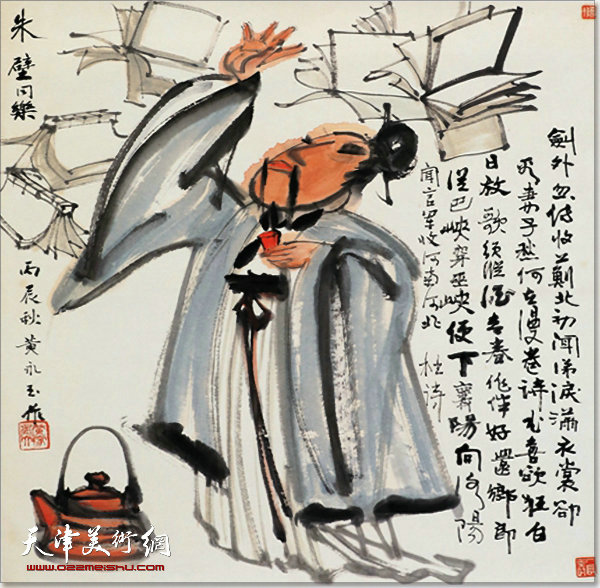 劍外忽传收薊北初闻涕淚滿衣裳卻
看妻子愁何在漫卷诗书喜欲狂白
日放歌须纵酒青春作伴好還鄉即
從巴峡穿巫峡便下襄陽向洛陽
闻官军收河南河北 杜诗
朱璧同樂
丙辰秋黄永玉作
天津美術網
www.022meishu.com